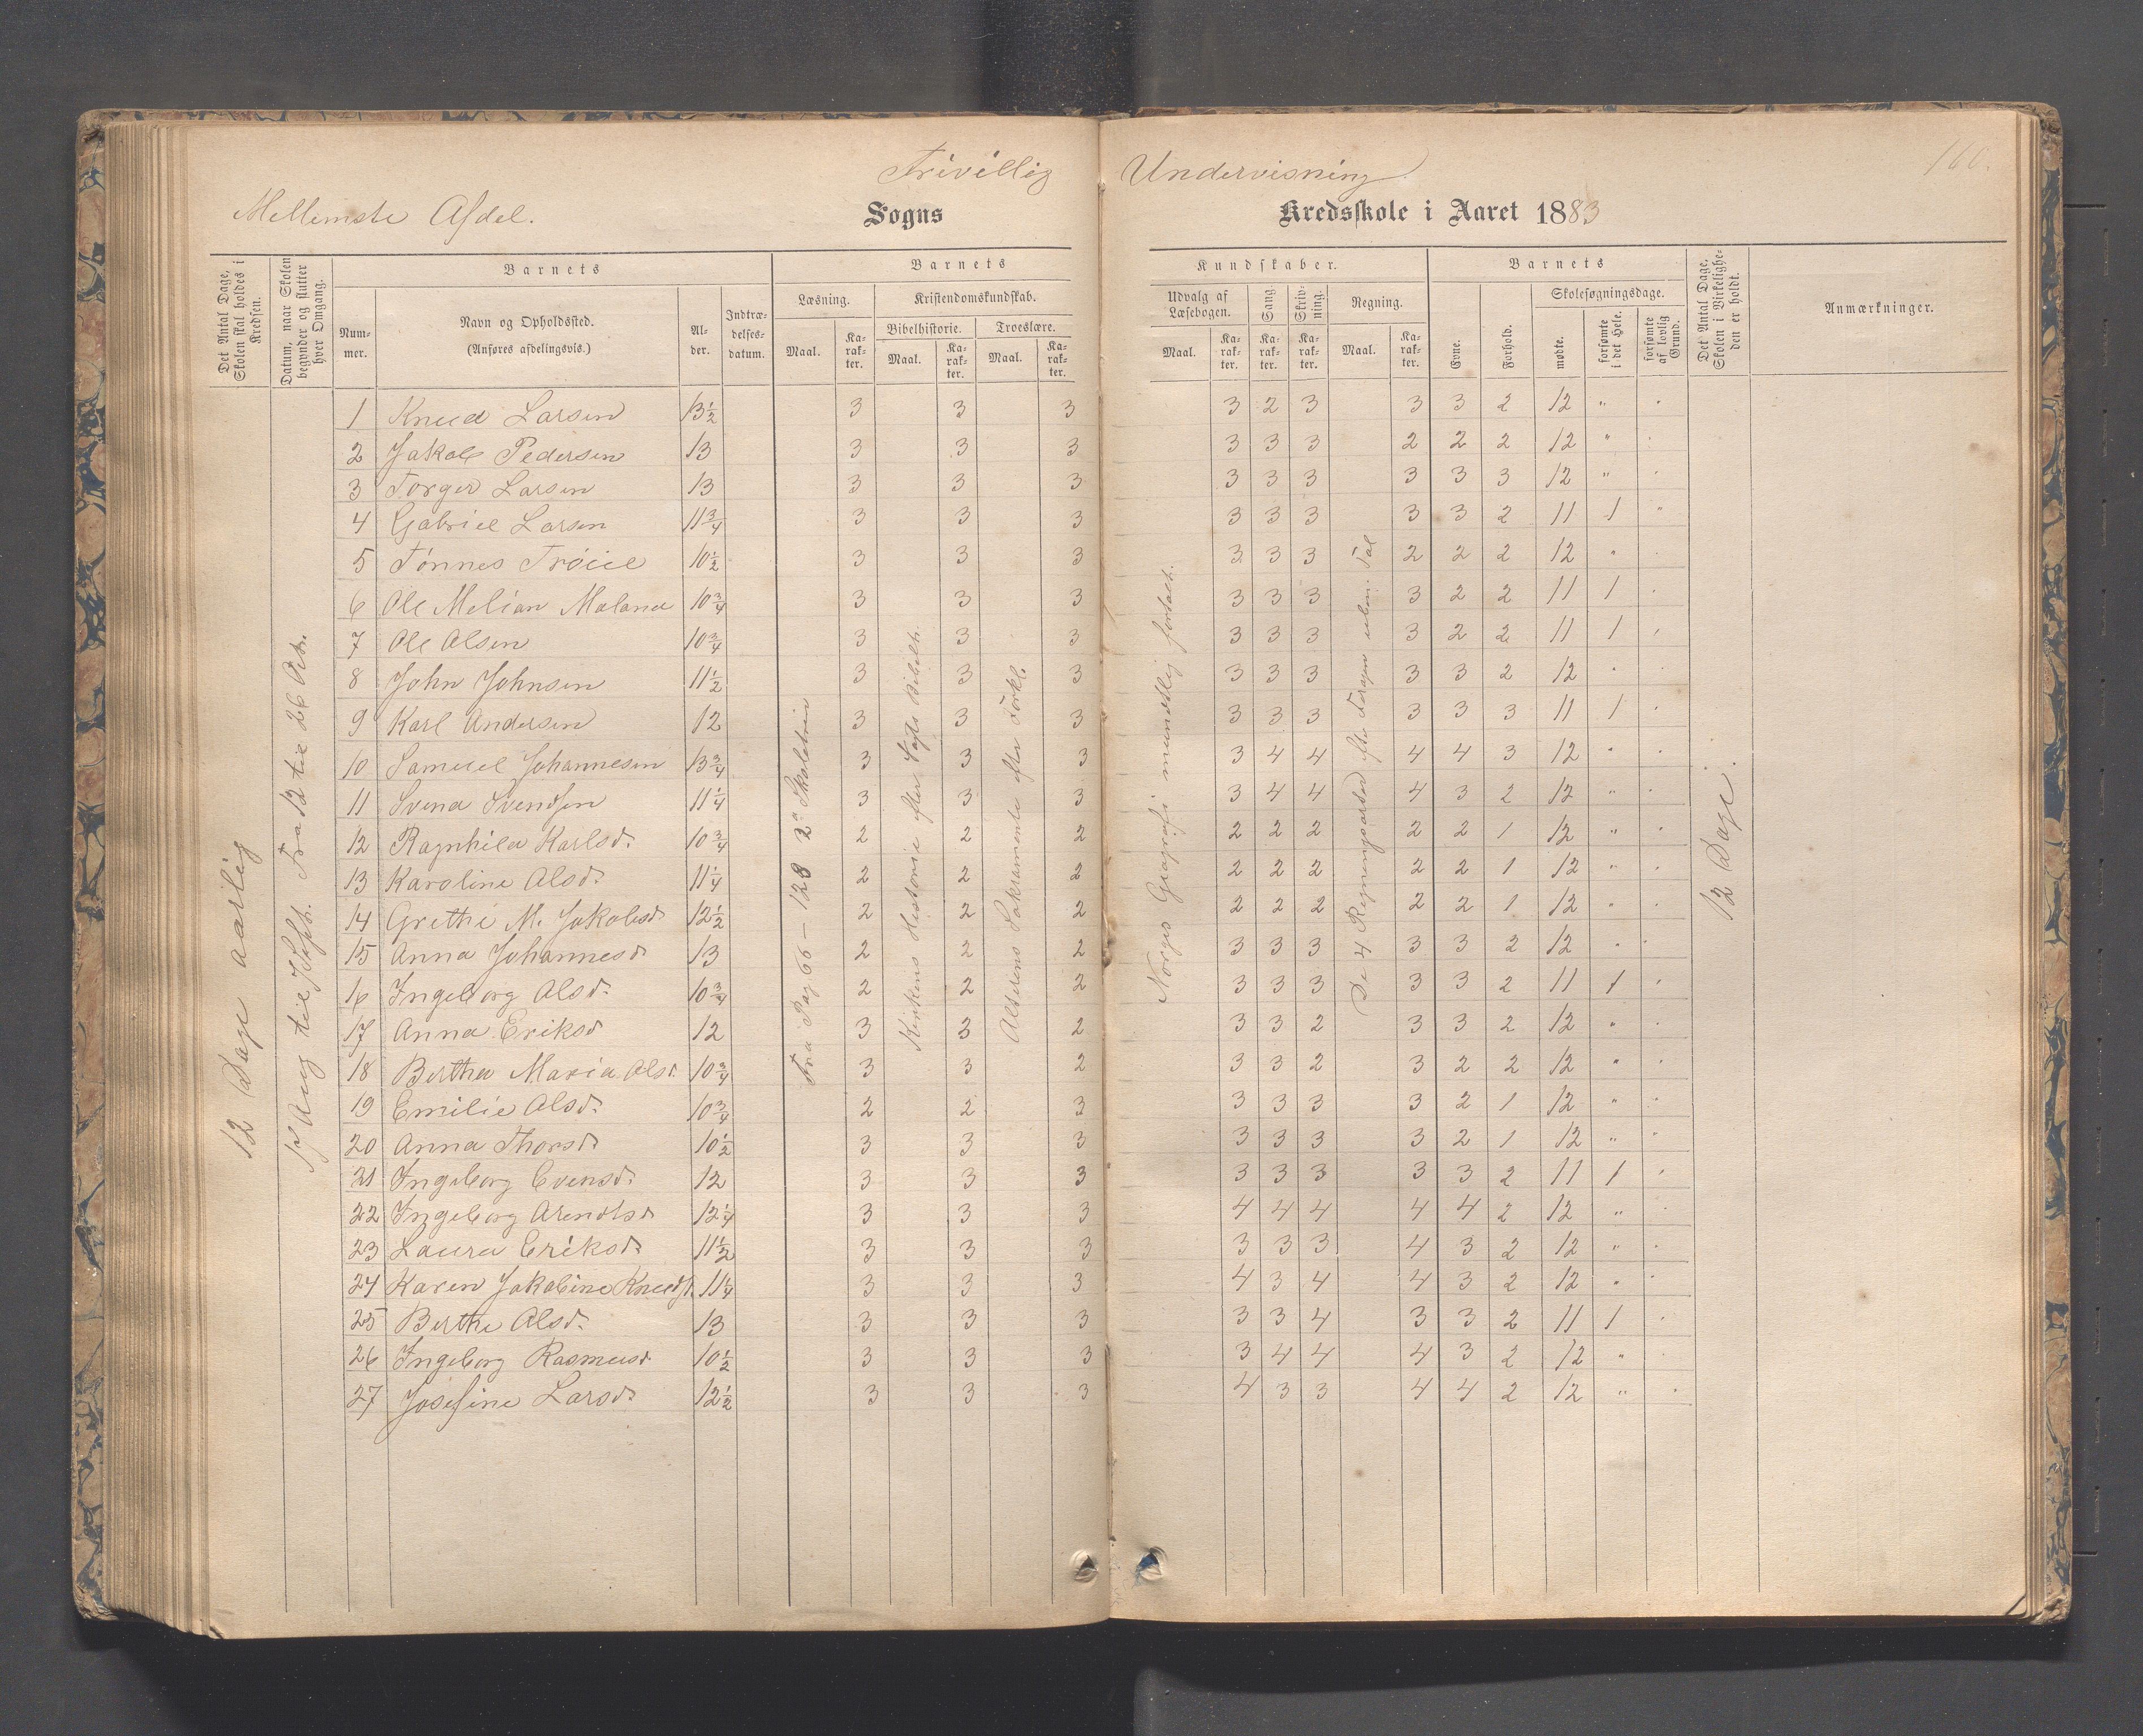 Frivillig Undervisning
166.
Mellemste Afdel.
Sogns Kredsskole i Aaret 1883
Det Antal Dage, Skolen skal holdes i Kredsen.
Datum, naar Skolen begynder og slutter hver Omgang.
Barnets
Nummer.
Navn og Opholdssted.
(Anføres afdelingsvis.)
Alder.
Indtrædelsesdatum.
Barnets Kundskaber.
Læsning.
Maal.
Karakter.
Kristendomskundskab.
Bibelhistorie.
Maal.
Karakter.
Troeslære.
Maal.
Karakter.
Udvalg af Læsebogen.
Maal.
Karakter.
Sang.
Karakter.
Skrivning.
Karakter.
Regning.
Maal.
Karakter.
Barnets
Evne.
Forhold.
Skolesøgningsdage.
mødte.
forsømte i det Hele.
forsømte af lovlig Grund.
Det Antal Dage, Skolen i Virkeligheden er holdt.
Anmærkninger.
12 Dage aarlig
Aug til Sept. Fra 12 til 26 Oct.
Fra Pag 66 - 128 2n Skoletrin
Kirkens Historie efter Vogts Bibelh.
Alterens Sakramente efter Forkl.
Norges Geografi mundtlig fortalt.
De 4 Regningsarter efter Foragen uben. Tal
12 Dage.
1 Knud Larsen 13½ 3 3 3 3 2 3 3 3 2 12 " "
2 Jakob Pedersen 13 3 3 3 3 3 3 2 2 2 12 " "
3 Torger Larsen 13 3 3 3 3 3 3 3 3 3 12 " "
4 Gabriel Larsen 11¾ 3 3 3 3 3 3 3 3 2 11 1 "
5 Tønnes Trøiel 10½ 3 3 3 3 3 3 2 2 2 12 " "
6 Ole Melian Maland 10¾ 3 3 3 3 3 3 3 2 2 11 1 "
7 Ole Olsen 10¾ 3 3 3 3 3 3 3 2 2 11 1 "
8 John Johnsen 11½ 3 3 3 3 3 3 3 3 2 12 " "
9 Karl Andersen 12 3 3 3 3 3 3 3 3 3 11 1 "
10 Samuel Johannesen 13¾ 3 3 3 3 4 4 4 4 3 12 " "
11 Svend Svendsen 11¼ 3 3 3 3 4 4 4 3 2 12 " "
12 Ragnhild Karlsd. 10¾ 2 2 2 2 2 2 2 2 1 12 " "
13 Karoline Olsd. 11¼ 2 2 2 2 2 2 2 2 1 12 " "
14 Grethe M. Jakobsd. 12½ 2 2 2 2 2 2 2 2 1 12 " "
15 Anna Johannesd. 13 2 2 2 3 3 3 3 3 2 12 " "
16 Ingeborg Olsd. 10¾ 2 2 2 3 3 3 3 3 2 11 1 "
17 Anna Eriksd 12 3 3 2 3 3 2 3 3 2 12 " "
18 Bertha Maria Olsd. 10¾ 3 3 2 3 3 2 3 2 2 12 " "
19 Emilie Olsd. 10¾ 2 2 3 3 3 3 3 2 1 12 " "
20 Anna Thorsd. 10½ 3 3 3 3 3 3 3 2 1 12 " "
21 Ingeborg Evensd. 12 3 3 3 3 3 3 3 3 2 11 1 "
22 Ingeborg Arendtsd. 12¼ 3 3 3 4 4 4 4 4 2 12 " "
23 Laura Eriksd. 11½ 3 3 3 3 3 3 4 3 2 12 " "
24 Karen Jakobine Knudsd. 11¼ 3 3 3 4 3 4 4 3 2 12 " "
25 Berthe Olsd. 13 3 3 3 3 3 4 3 3 2 11 1 "
26 Ingeborg Rasmusd. 10½ 3 3 3 3 4 4 4 3 2 12 " "
27 Josefine Larsd. 12½ 3 3 3 4 3 3 4 4 2 12 " "